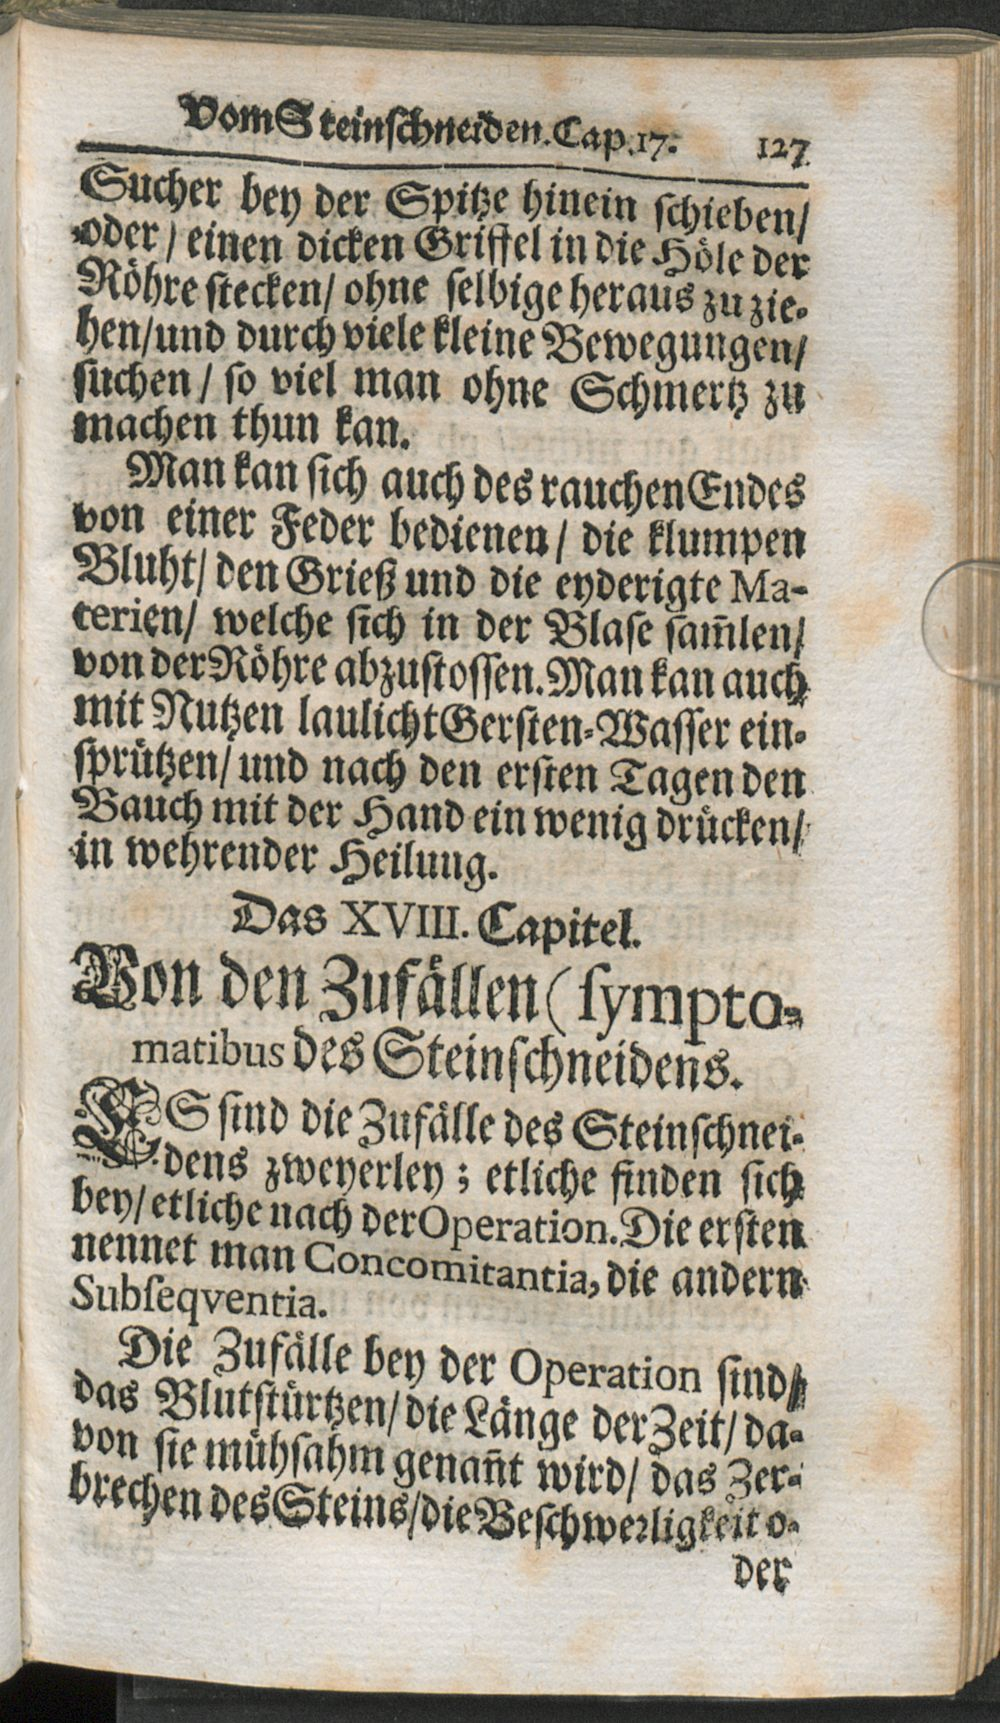 Vom Steinschneiden. Cap. 17. 127
Sucher bey der Spitze hinein schieben/
oder/ einen dicken Griffel in die Höle der
Röhre stecken/ ohne selbige heraus zu zie-
hen/ und durch viele kleine Bewegungen/
suchen/ so viel man ohne Schmertz zu
machen thun kan.
Man kan sich auch des rauchen Endes
von einer Feder bedienen/ die klumpen
Bluht/ den Grieß und die eyderigte Ma-
terien/ welche sich in der Blase sam̃len/
von der Röhre abzustossen. Man kan auch
mit Nutzen laulicht Gersten-Wasser ein-
sprützen/ und nach den ersten Tagen den
Bauch mit der Hand ein wenig drücken/
in wehrender Heilung.
Das XVIII. Capitel.
Von den Zufällen (sympto-
matibus des Steinschneidens.
ES sind die Zufälle des Steinschnei-
dens zweyerley; etliche finden sich
bey/ etliche nach der Operation. Die ersten
nennet man Concomitantia, die andern
Subseqventia.
Die Zufälle bey der Operation sind/
das Blutstürtzen/ die Länge der Zeit/ da-
von sie mühsahm genañt wird/ das Zer-
brechen des Steins/ die Beschwerligkeit o-
der